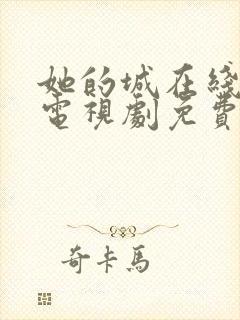 她的城在綫
電視劇免費
奇卡馬